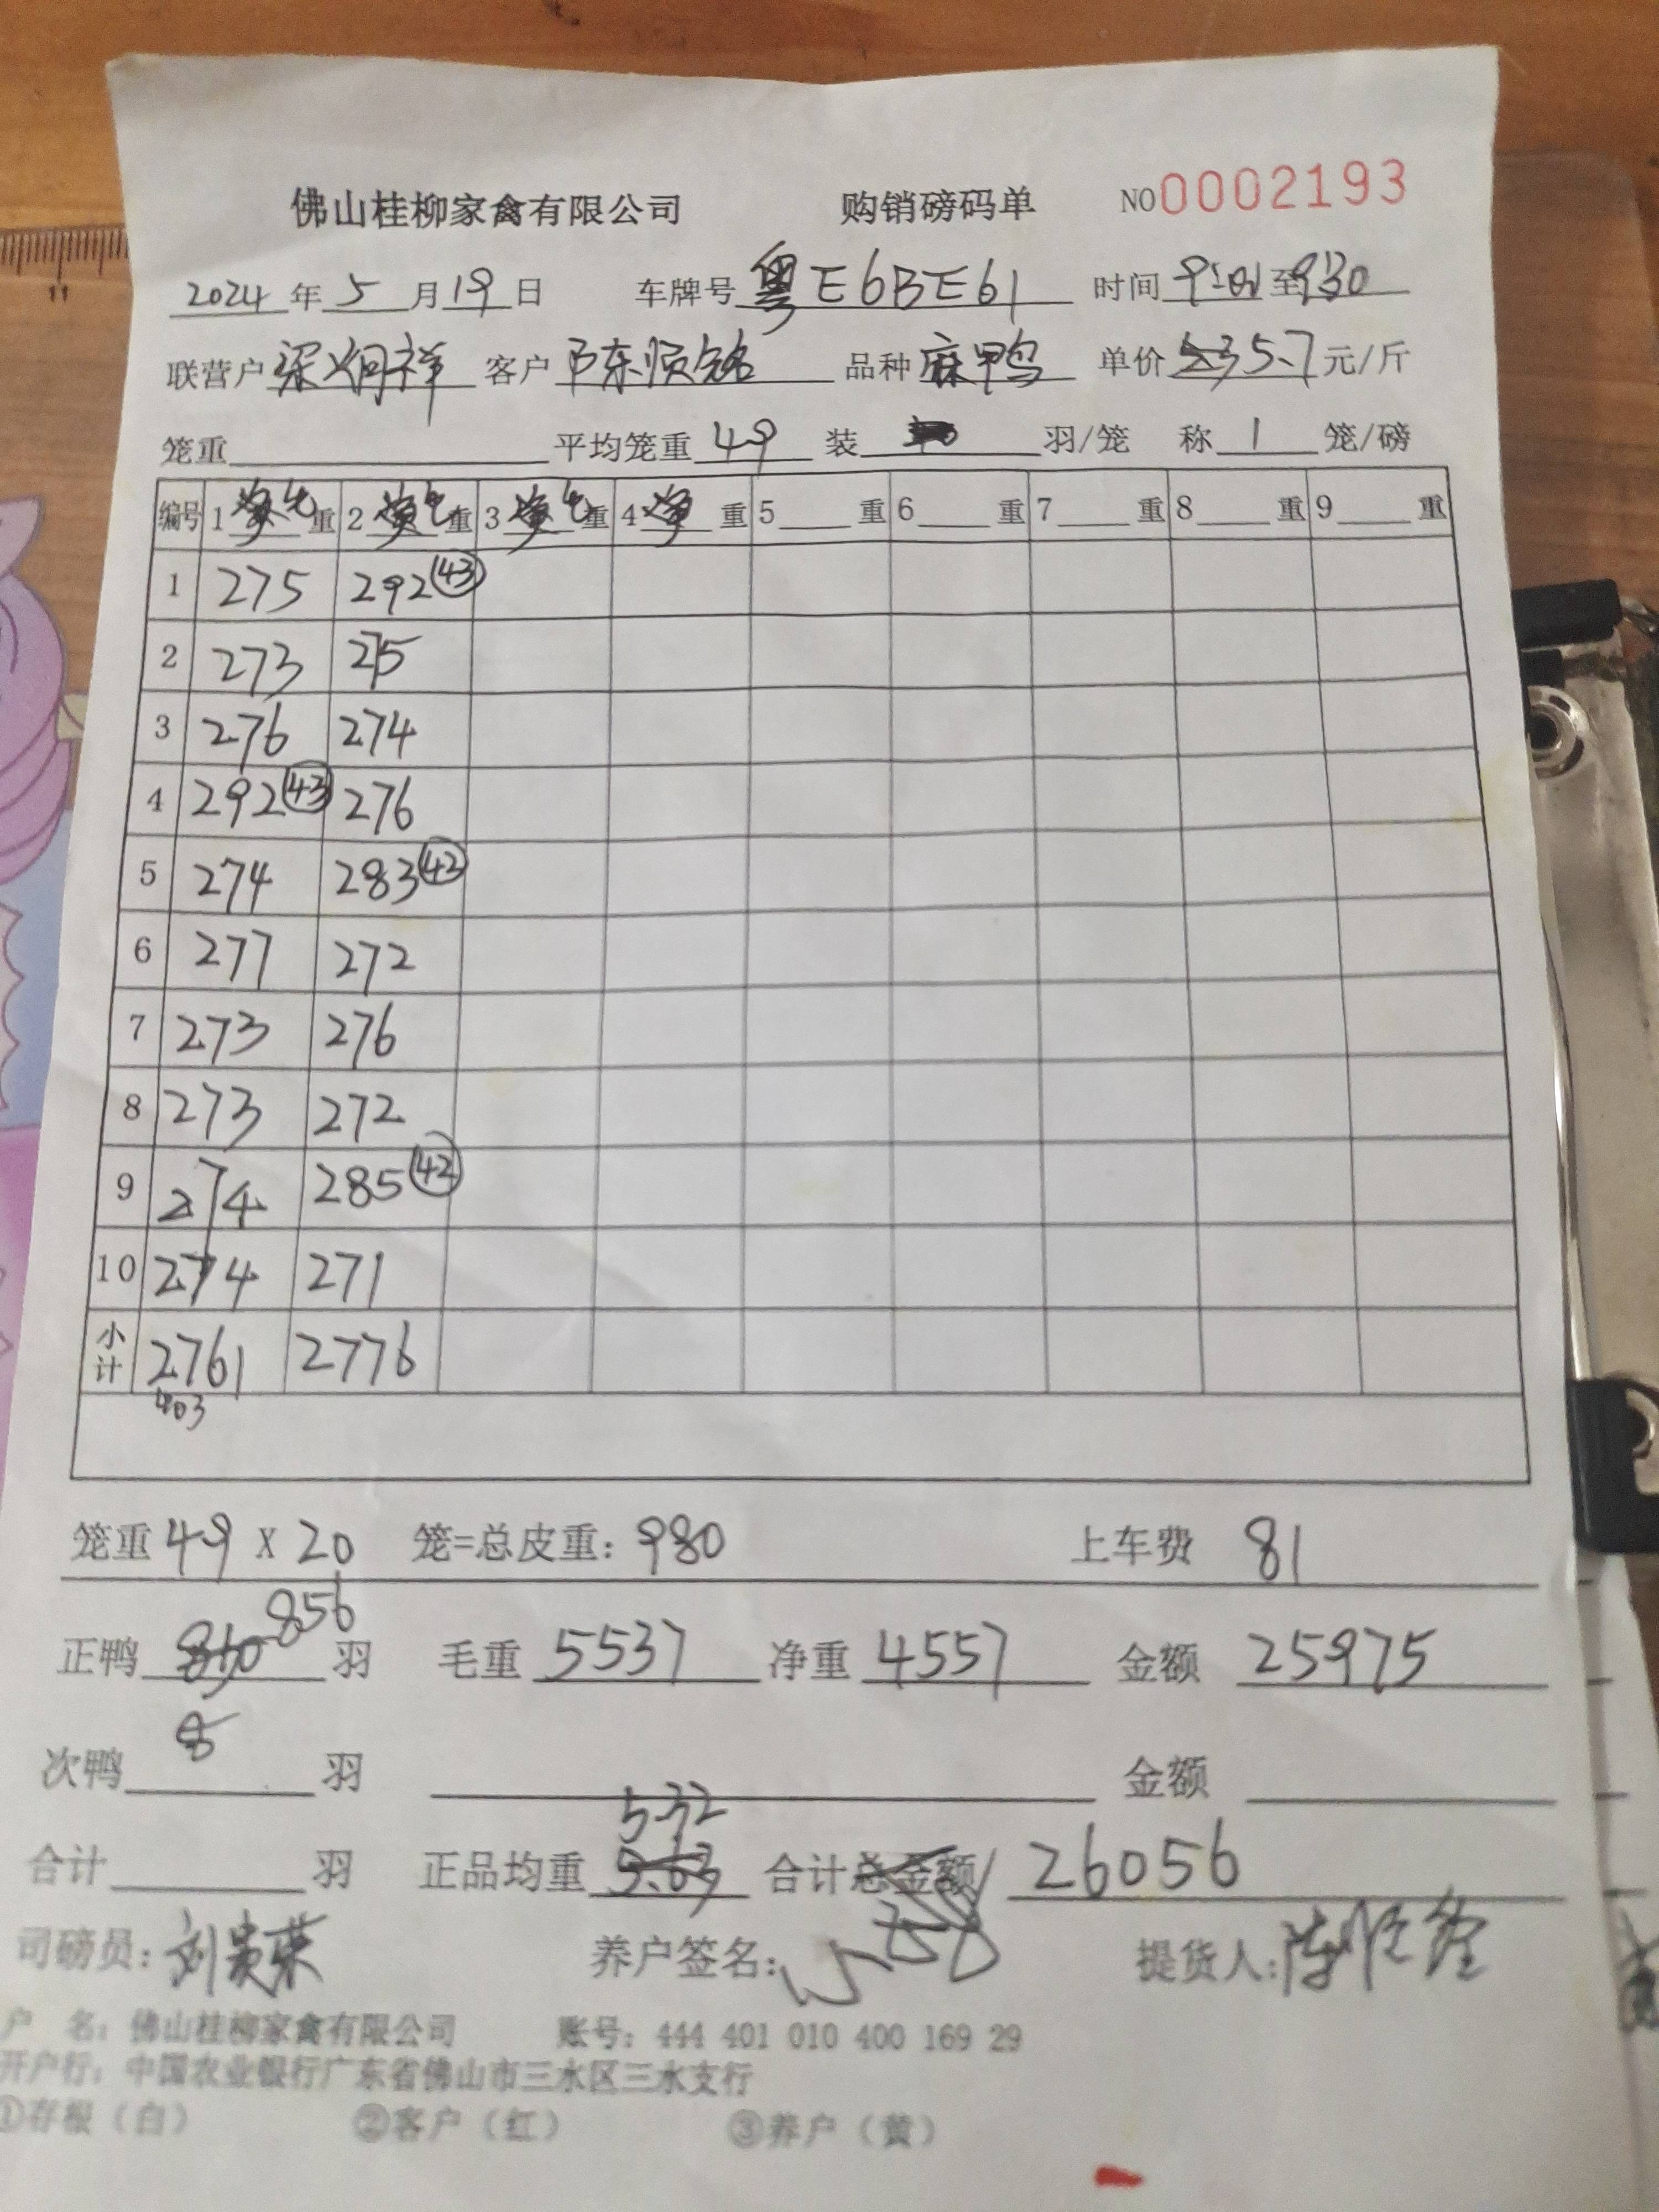 佛山桂柳家禽有限公司 购销磅码单 NO0002193
2024年5月19日 车牌号粤E6BE61 时间9:01至9:30
联营户梁炳祥 客户陈顺铭 品种麻鸭 单价5.7元/斤
笼重 平均笼重49 装 羽/笼 称1笼/磅
编号 1毛重 2毛重 3毛重 4净重 5重 6重 7重 8重 9重
1 275 292 43
2 273 275
3 276 274
4 292 43 276
5 274 283 42
6 277 272
7 273 276
8 273 272
9 274 285 42
10 274 271
小计 2761 2776
403
笼重49 X 20 笼=总皮重:980 上车费 81
正鸭856羽 毛重5537 净重4557 金额25975
次鸭8羽 金额
合计羽 正品均重5.32 合计 26056
司磅员:刘 养户签名: 提货人:陈
户 名:佛山桂柳家禽有限公司 账号:444 401 010 400 169 29
开户行:中国农业银行广东省佛山市三水区三水支行
①存根(白) ②客户(红) ③养户(黄)